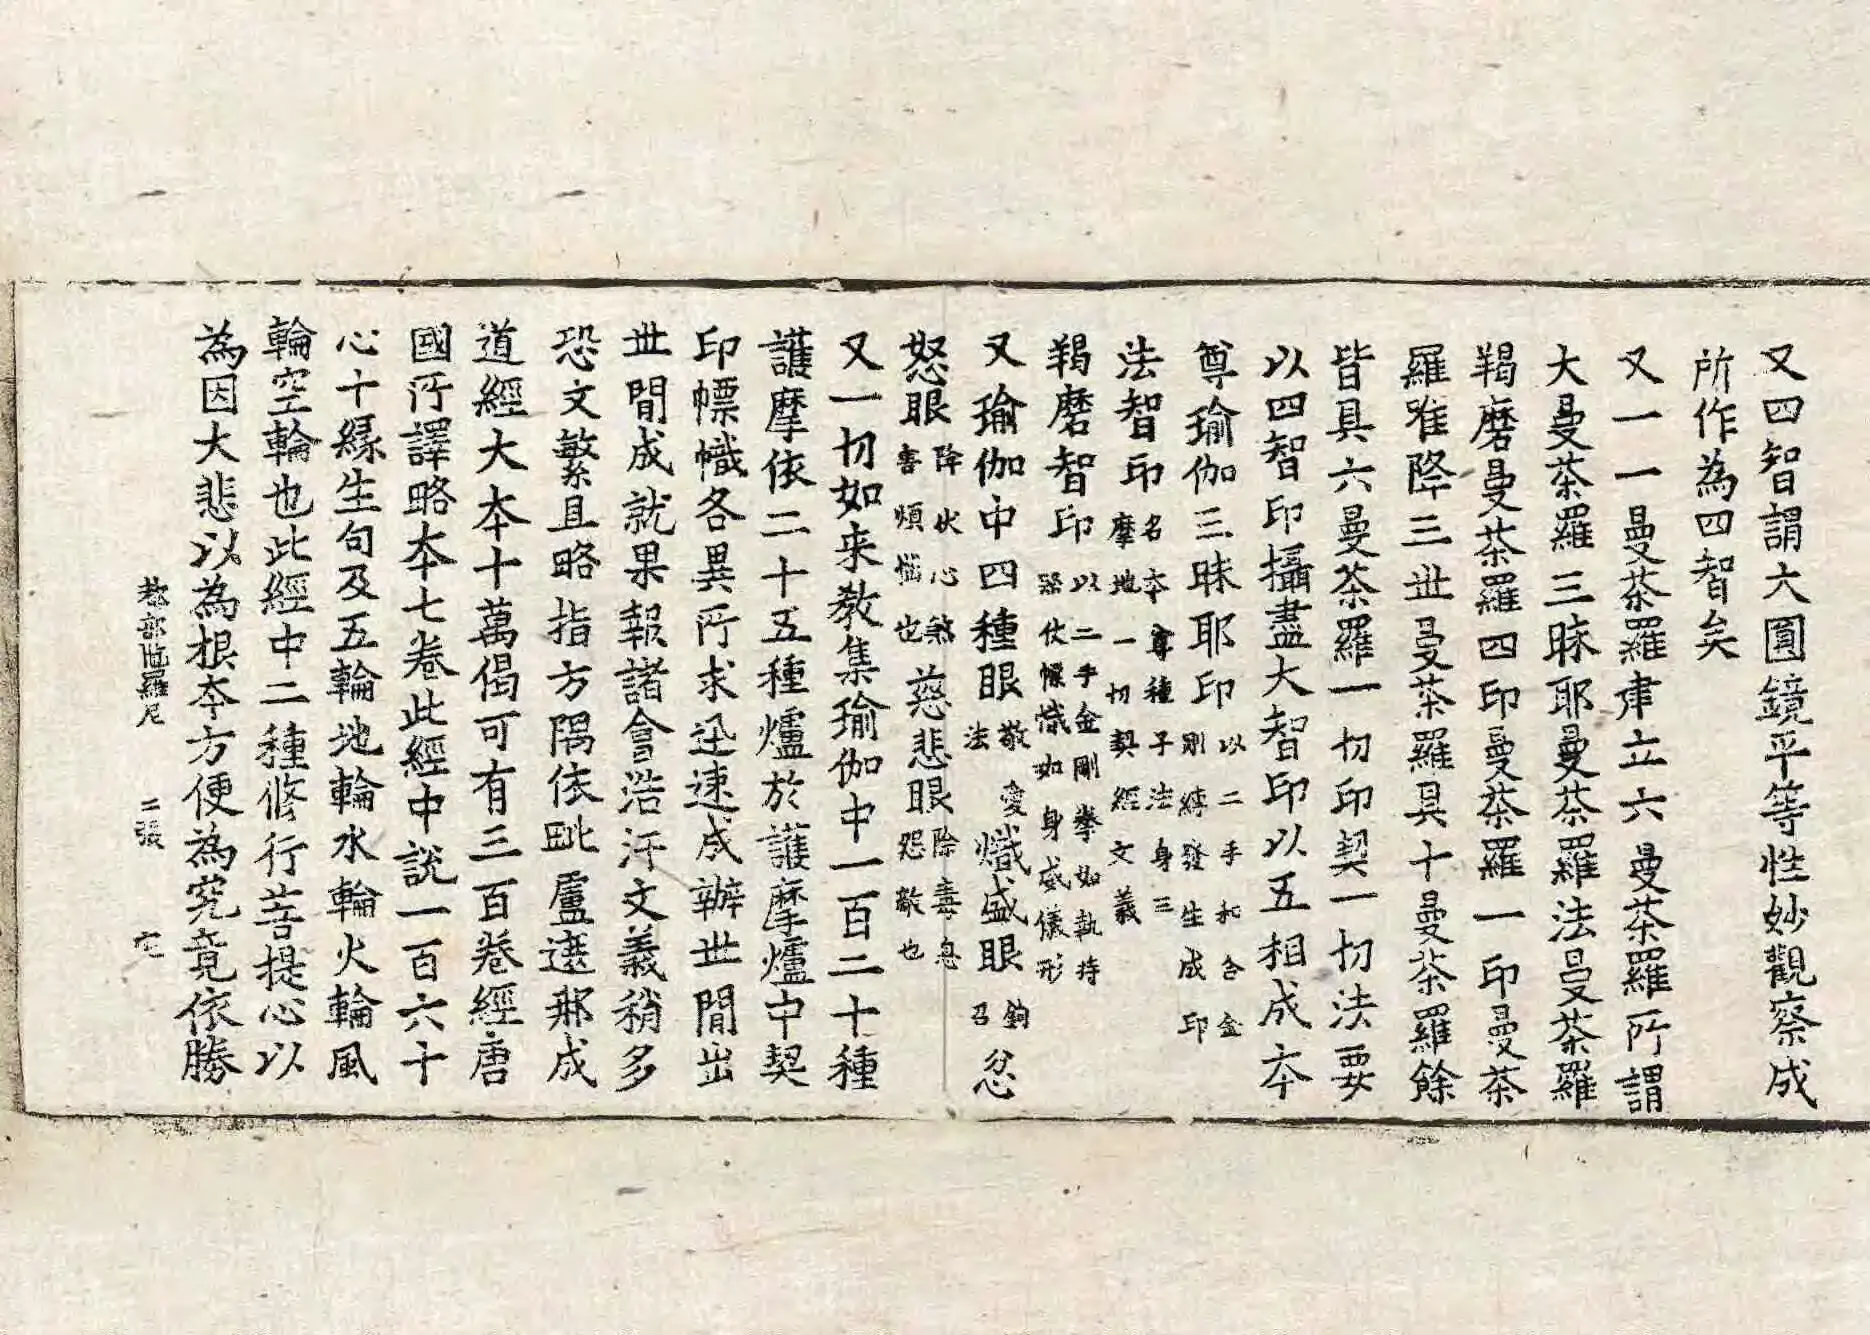 又四智謂大圓鏡平等性妙觀察成
所作為四智矣
又一一曼茶羅建立六曼茶羅所謂
大曼茶羅三昧耶曼茶羅法曼茶羅
羯磨曼茶羅四印曼茶羅一印曼茶
羅唯降三世曼茶羅具十曼茶羅餘
皆具六曼茶羅一切印契一切法要
以四智印攝盡大智印以五相成本
尊瑜伽三昧耶印以二手和合金剛縛發生成印
法智印名本尊種子法身三摩地一切契經文義
羯磨智印以二手金剛拳如執持器仗幖幟如身威儀形
又瑜伽中四種眼敬愛法熾盛眼鉤召忿
怒眼降伏心煞害煩惱也慈悲眼除毒息怨敵也
又一切如来教集瑜伽中一百二十種
護摩依二十五種爐於護摩爐中契
印幖幟各異所求迅速成辦世間出
世間成就果報諸會浩汗文義稍多
恐文繁且略指方隅依毗盧遮那成
道經大本十萬偈可有三百卷經唐
國所譯略本七卷此經中說一百六十
心十緣生句及五輪地輪水輪火輪風
輪空輪也此經中二種修行菩提心以
為因大悲以為根本方便為究竟依勝
都部陁羅尼 二張 宅